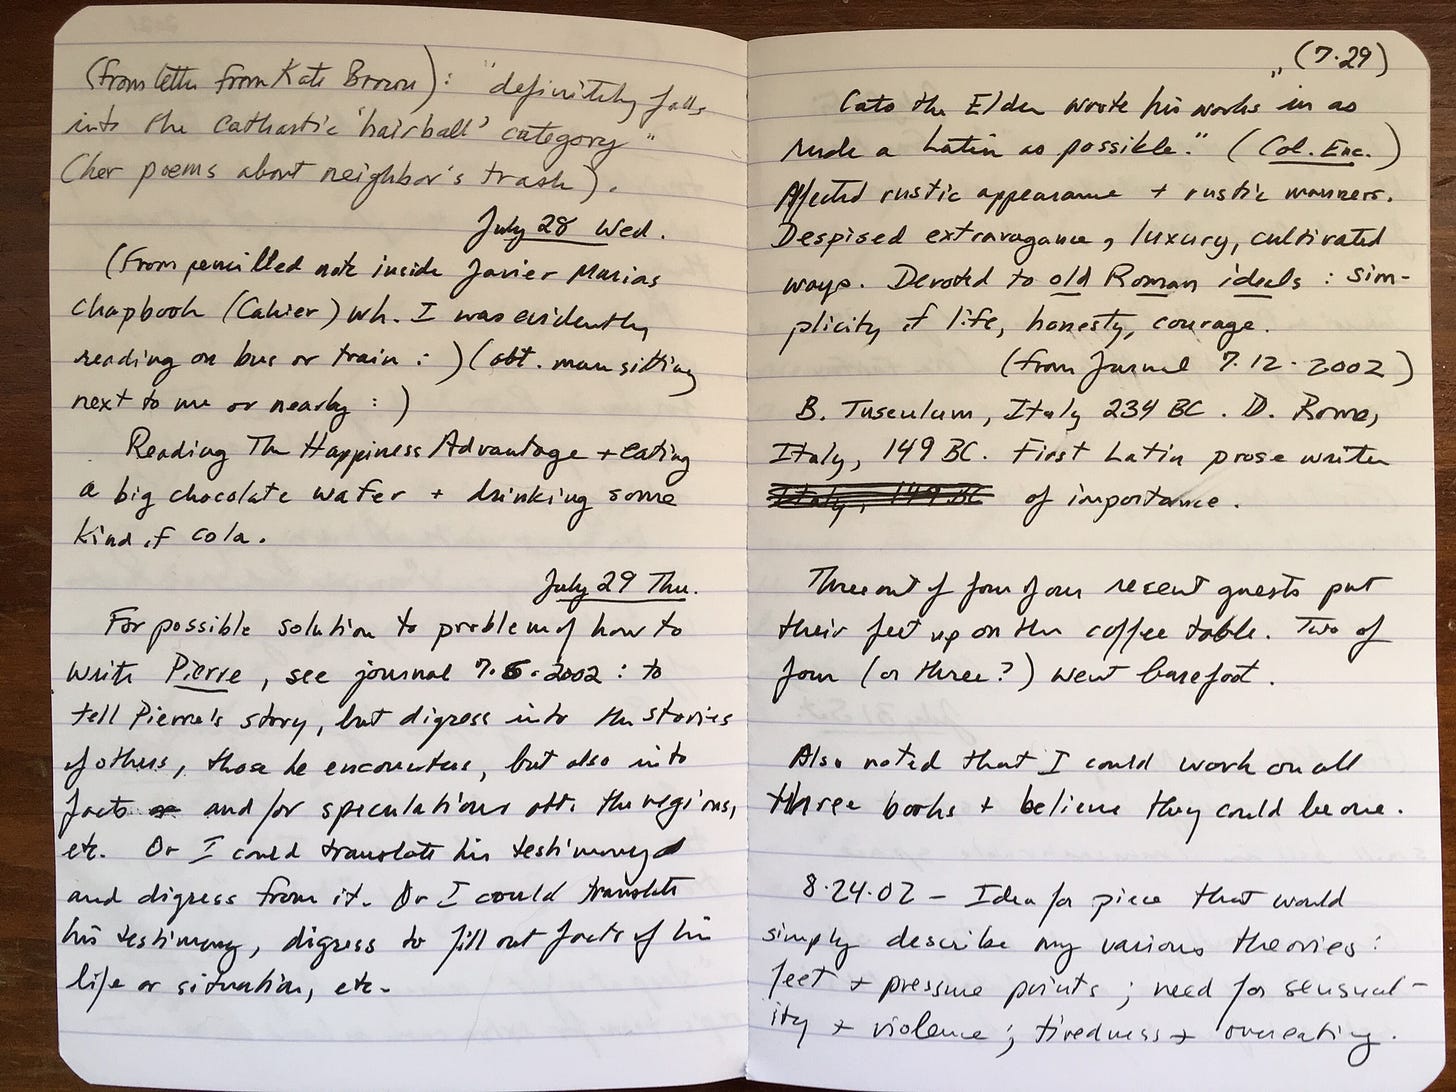 (From letter from Kate Brown): "definitely falls
into the cathartic 'hairball' category"
(her poems about neighbor's trash).
July 28 Wed.
(From pencilled note inside Javier Marias
chapbook (Cahier) wh. I was evidently
reading on bus or train:) (abt. man sitting
next to me or nearby:)
Reading The Happiness Advantage + eating
a big chocolate wafer + drinking some
kind of cola.
July 29 Thu.
For possible solution to problem of how to
write Pierre, see journal 7.6.2002: to
tell Pierre's story, but digress into the stories
of others, those he encounters, but also into
facts and/or speculations abt. the regions,
etc. Or I could translate his testimony
and digress from it. Or I could translate
his testimony, digress to fill out facts of his
life or situation, etc.
(7.29)
"Cato the Elder wrote his works in as
rude a Latin as possible." (Col. Enc.)
Affected rustic appearance + rustic manners.
Despised extravagance, luxury, cultivated
ways. Devoted to old Roman ideals: sim-
plicity of life, honesty, courage.
(from Journal 7.12.2002)
B. Tusculum, Italy 234 BC. D. Rome,
Italy, 149 BC. First Latin prose writer
Italy, 149 BC of importance.
Three out of four of our recent guests put
their feet up on the coffee table. Two of
four (or three?) went barefoot.
Also noted that I could work on all
three books + believe they could be one.
8.24.02 – Idea for piece that would
simply describe my various theories:
feet + pressure points; need for sensual-
ity + violence; tiredness + overeating.